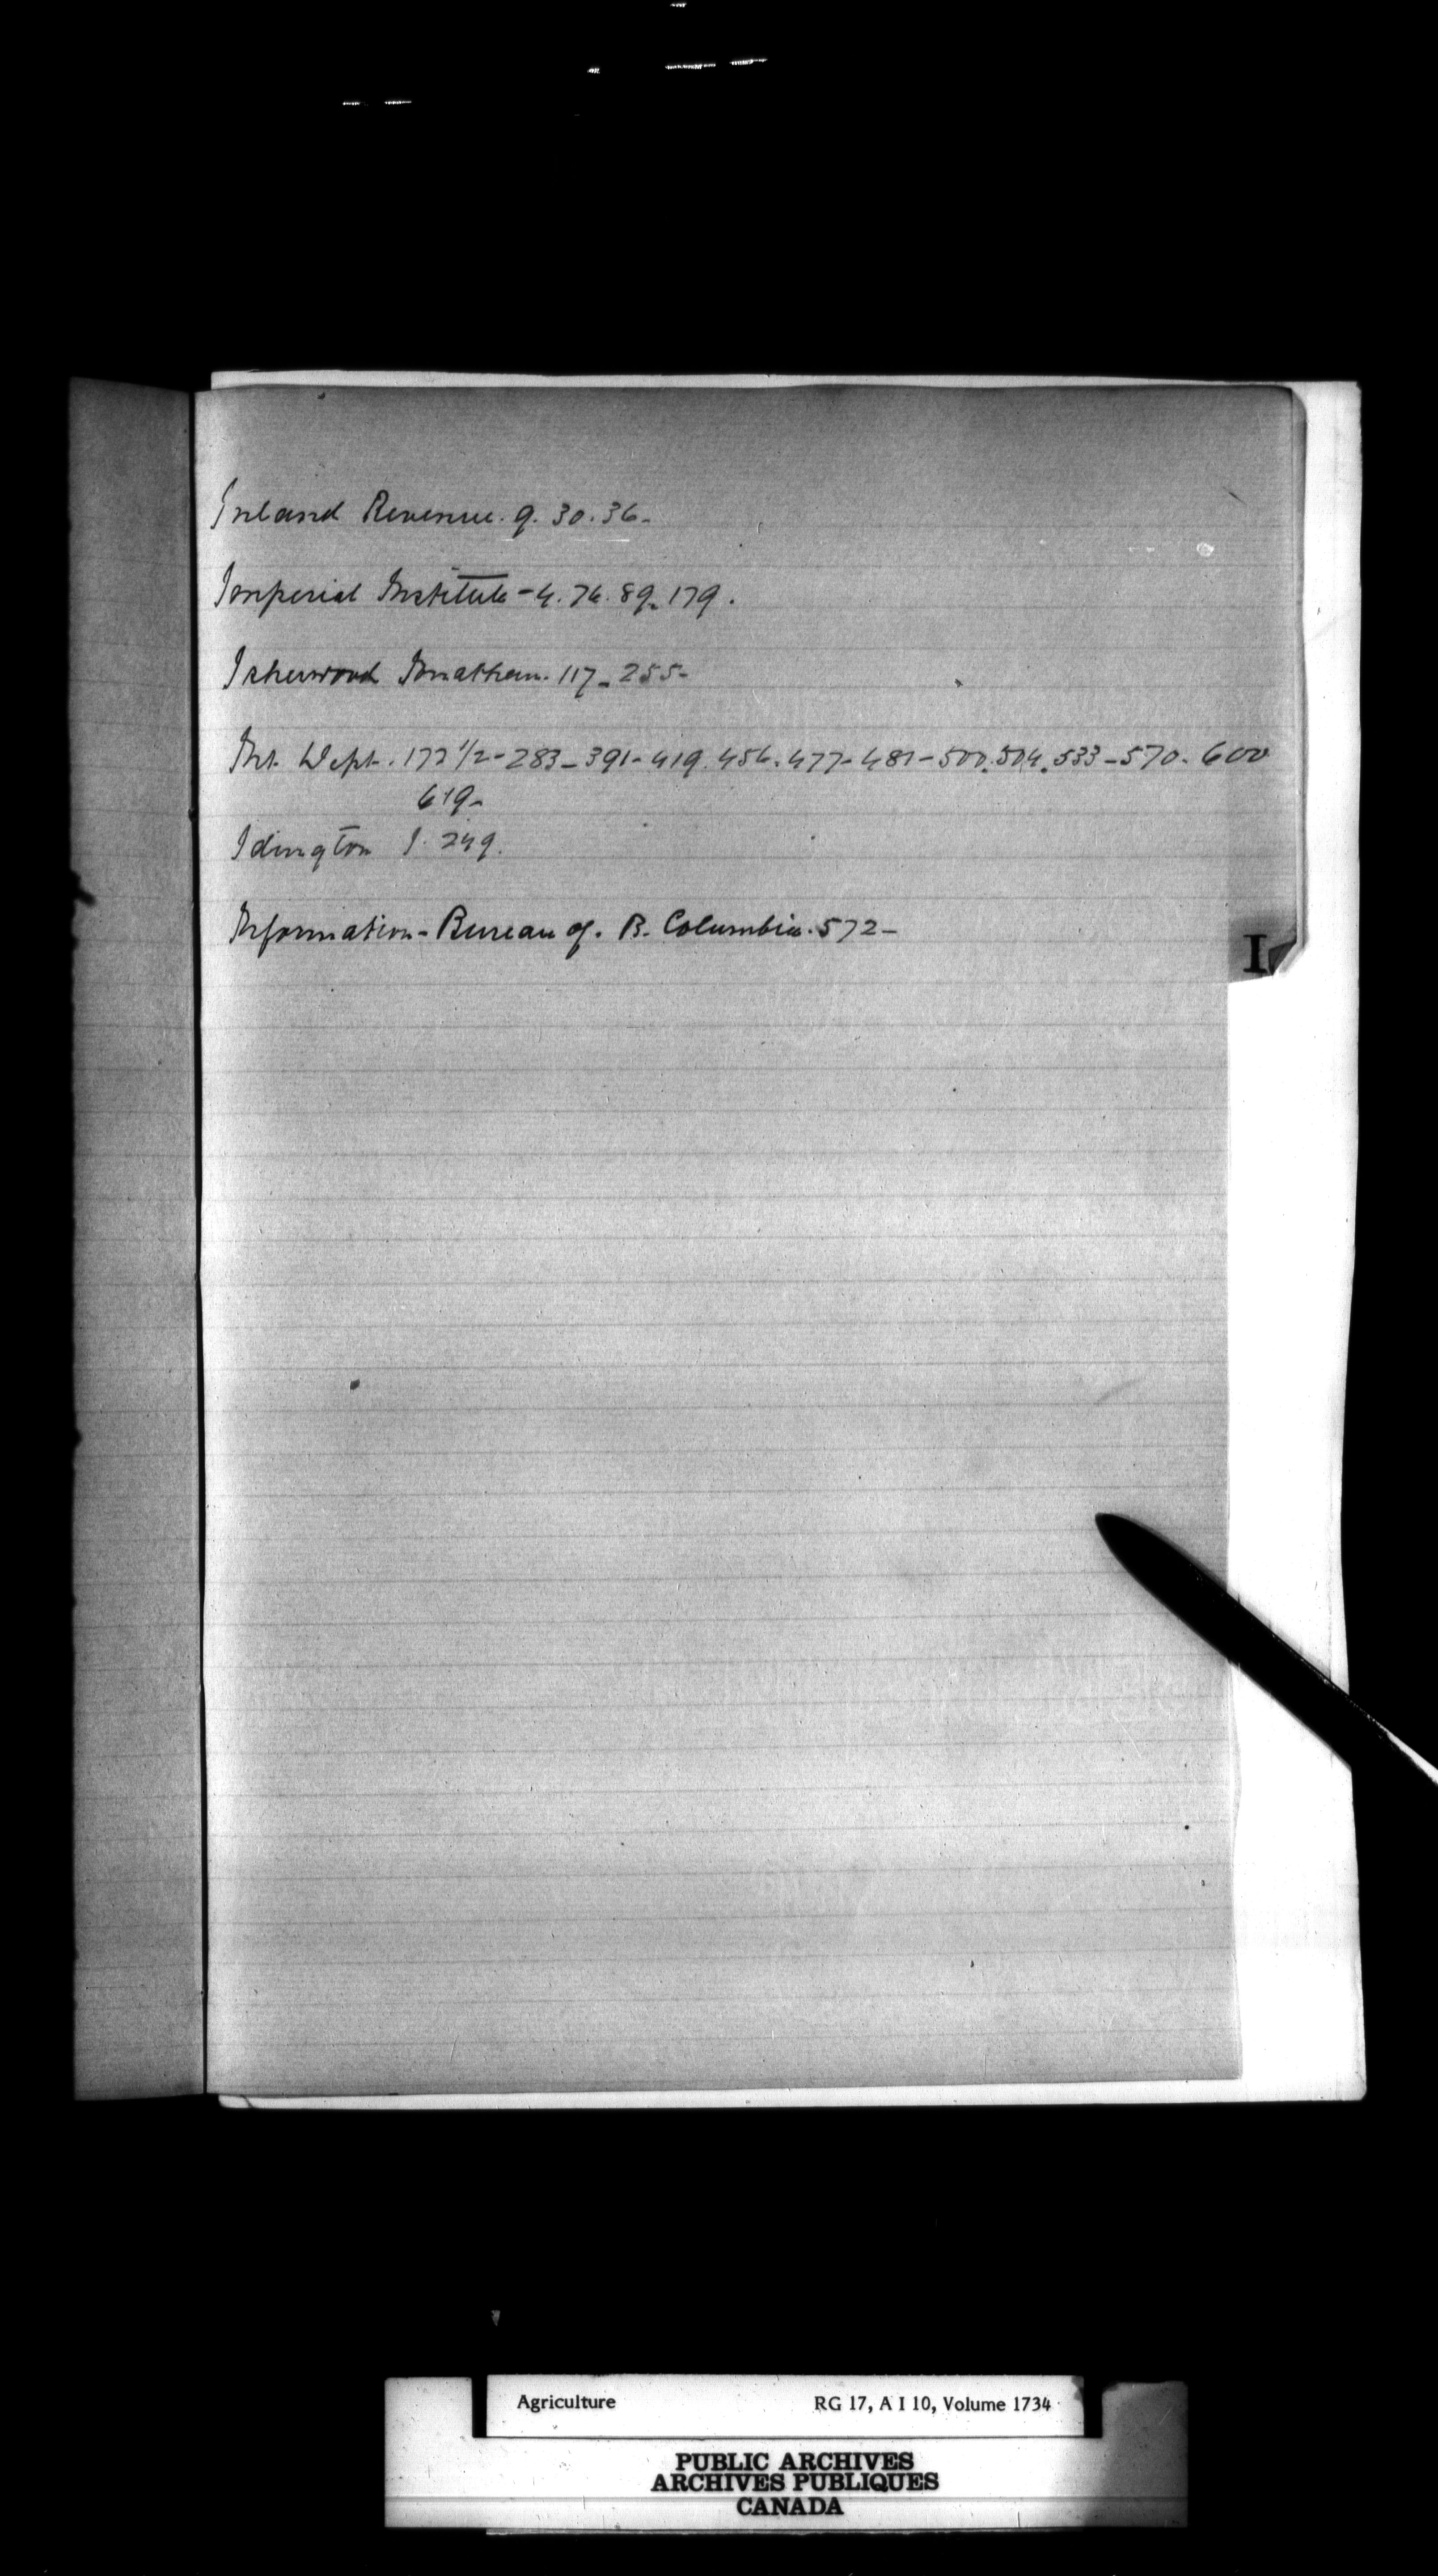 Inland Revenue. 9. 30. 36-
Imperial Institute - 4. 76. 89. 179.
Isherwood Jonathan. 117 - 255-
Int. Dept. 172 1/2 - 283 - 391 - 419. 456. 477 - 481 - 500. 504. 533 - 570. 600
619-
Idington J. 249.
Information - Bureau of. B. Columbia. 572 -
I
Agriculture RG 17, A I 10, Volume 1734
PUBLIC ARCHIVES
ARCHIVES PUBLIQUES
CANADA